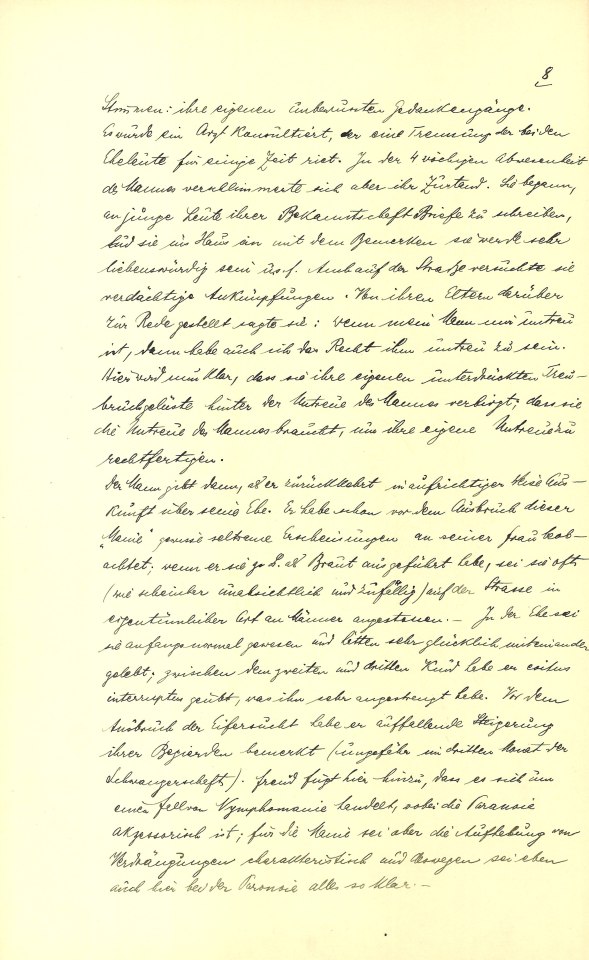 8
Stimmen: ihre eigenen unbewussten Gedankengänge.
Es wurde ein Arzt Konsultiert, der eine Trennung der beiden
Eheleute für einige Zeit riet. In der 4 wöchigen Abwesenheit
des Mannes verschlimmerte sich aber ihr Zustand. Sie begann,
an junge Leute ihrer Bekanntschaft Briefe zu schreiben,
lud sie ins Haus ein mit dem Bemerken sie werde sehr
liebenswürdig sein u.s.f. Auch auf der Straße versuchte sie
verdächtige Anknüpfungen. Von ihren Eltern darüber
zur Rede gestellt sagte sie: wenn mein Mann mir untreu
ist, dann habe auch ich das Recht ihm untreu zu sein.
Hier wird nun klar, dass sie ihre eigenen unterdrückten Treu-
bruchgelüste hinter der Untreue des Mannes verbirgt; dass sie
die Untreue des Mannes braucht, um ihre eigene Untreue zu
rechtfertigen.
Der Mann gibt dann, als er zurückkehrt in aufrichtiger Weise Aus-
kunft über seine Ehe. Er habe schon vor dem Ausbruch dieser
"Manie" gewisse seltene Erscheinungen an seiner Frau beob-
achtet; wenn er sie z. B. als Braut ausgeführt habe, sei sie oft
(wie scheinbar unabsichtlich und zufällig) auf der Strasse in
eigentümlicher Art an Männer angestossen. — In der Ehe sei
sie anfangs normal gewesen und hätten sehr glücklich miteinander
gelebt; zwischen dem zweiten und dritten Kind habe er coitus
interruptus geübt, was ihn sehr angestrengt habe. Vor dem
Ausbruch der Eifersucht habe er auffallende Steigerung
ihrer Begierden bemerkt (ungefähr im dritten Monat der
Schwangerschaft). Freud fügt hier hinzu, dass es sich um
einen Fall von Nymphomanie handelt, wobei die Paranoie
akzessorisch ist; für die Manie sei aber die Aufhebung von
Verdrängungen charakteristisch und deswegen sei eben
auch hier bei der Paranoie alles so klar. —